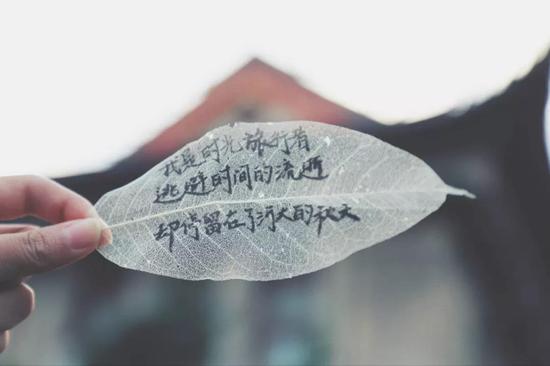 我是时光旅行者
逃避时间的流逝
却停留在了河大的秋天